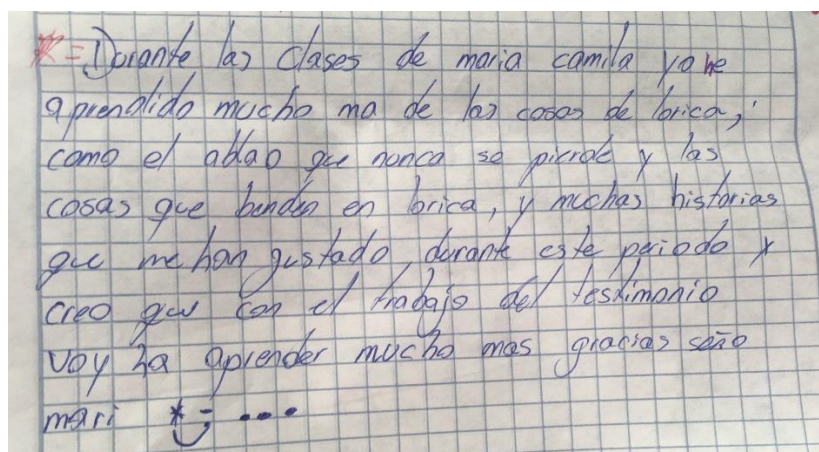 *= Durante las clases de maria camila yo he
aprendido mucho ma de las cosas de lorica,
como el ablao que nonca se pierde y las
cosas que benden en lorica, y muchas historias
que me han gustado, durante este periodo y
creo que con el trabajo del testimonio
voy ha aprender mucho mas gracias seño
mari *; ...